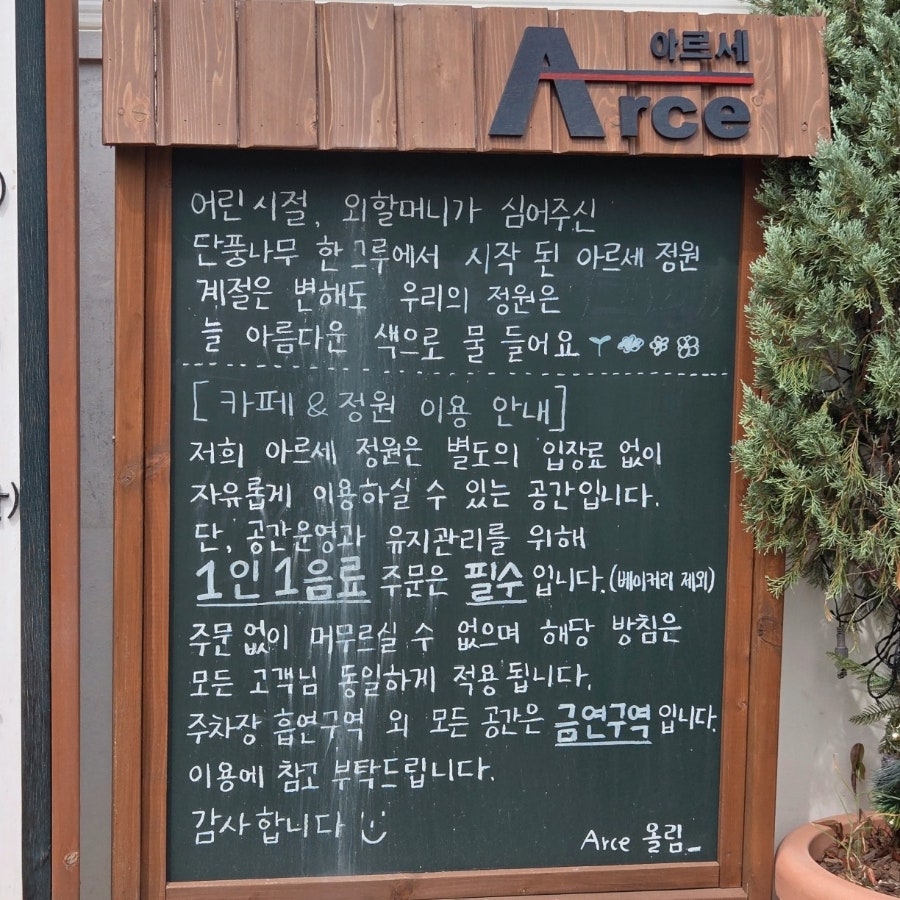 아르세
Arce
어린 시절, 외할머니가 심어주신
단풍나무 한 그루에서 시작 된 아르세 정원
계절은 변해도 우리의 정원은
늘 아름다운 색으로 물 들어요
[카페 & 정원 이용 안내]
저희 아르세 정원은 별도의 입장료 없이
자유롭게 이용하실 수 있는 공간입니다.
단, 공간운영과 유지관리를 위해
1인 1음료 주문은 필수입니다.(베이커리 제외)
주문 없이 머무르실 수 없으며 해당 방침은
모든 고객님 동일하게 적용됩니다.
주차장 흡연구역 외 모든 공간은 금연구역입니다.
이용에 참고 부탁드립니다.
감사합니다 :)
Arce 올림_